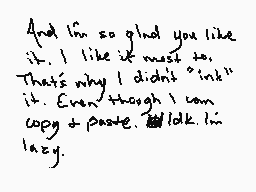 And I'm so glad you like
it. I like it most to.
That's why I didn't "ink"
it. Even though I can
copy & paste. Idk. I'm
lazy.